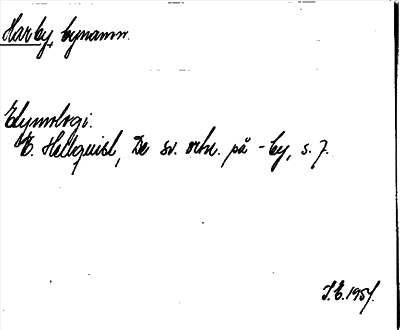 Harby, bynamn.
Etymologi.
E. Hellquist, De sv. ortn. på -by, s. 7.
J.E. 1954.